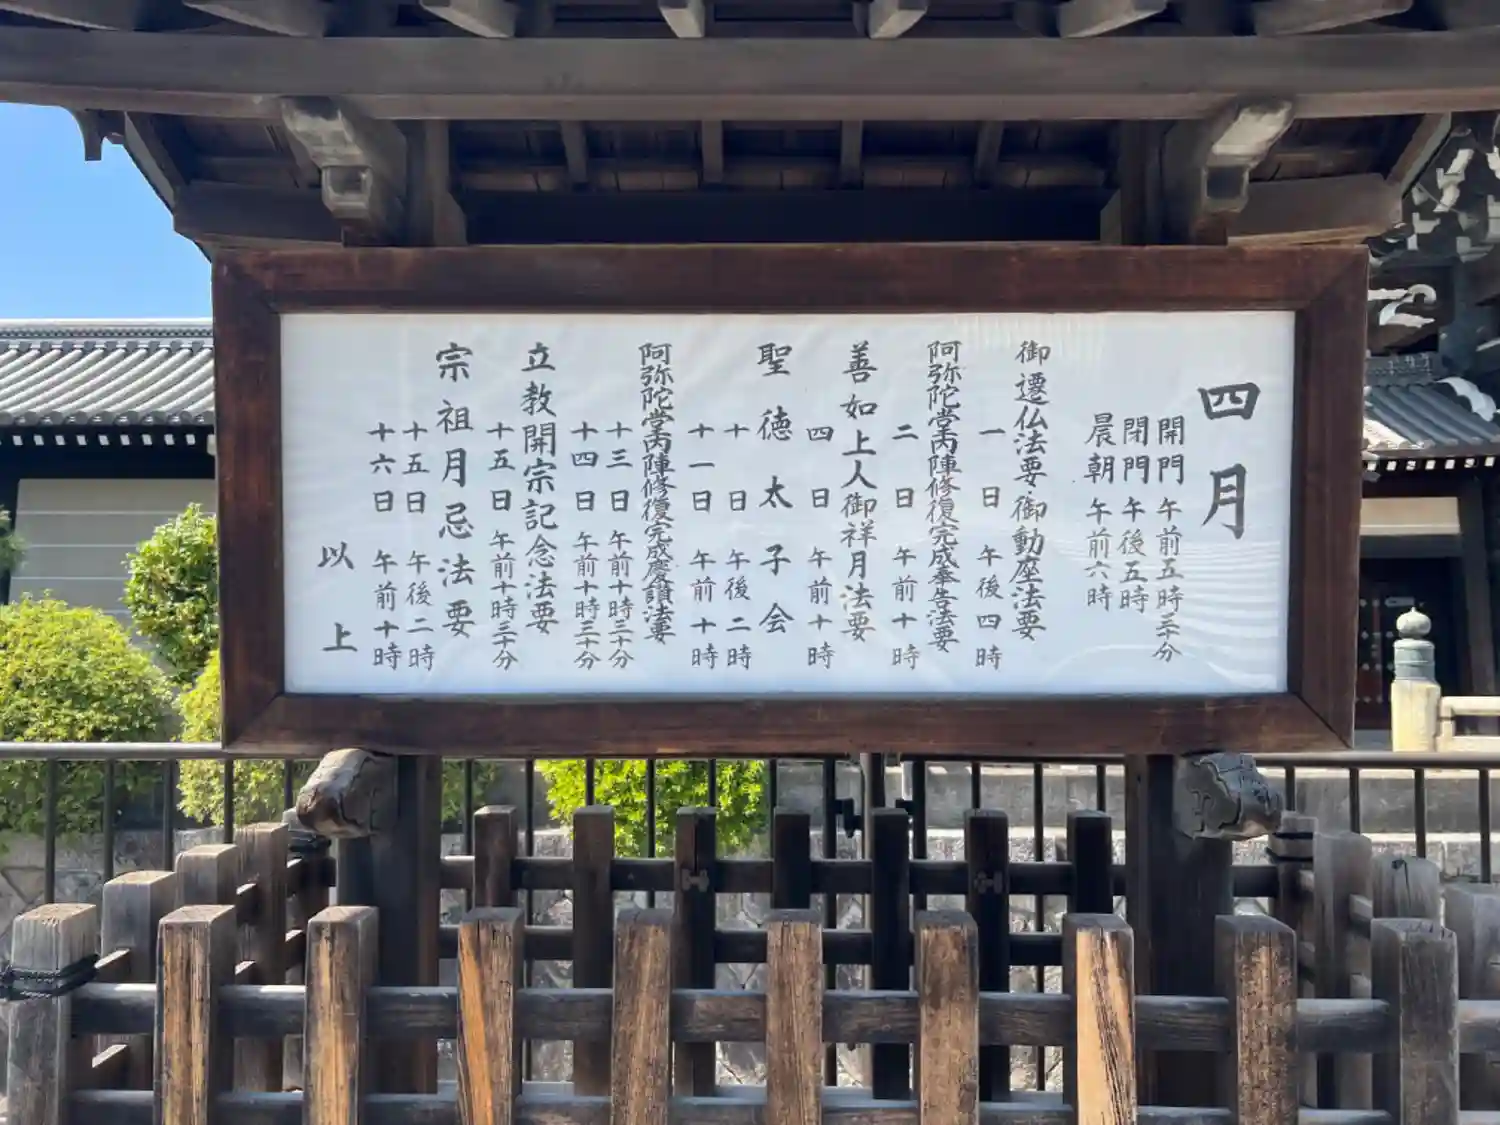 四月
開門 午前五時三十分
閉門 午後五時
晨朝 午前六時
御遷仏法要・御動座法要
一日 午後四時
阿弥陀堂内陣修復完成奉告法要
二日 午前十時
善如上人御祥月法要
四日 午前十時
聖徳太子会
十日 午後二時
十一日 午前十時
阿弥陀堂内陣修復完成慶讃法要
十三日 午前十時三十分
十四日 午前十時三十分
立教開宗記念法要
十五日 午前十時三十分
宗祖月忌法要
十五日 午後二時
十六日 午前十時
以上